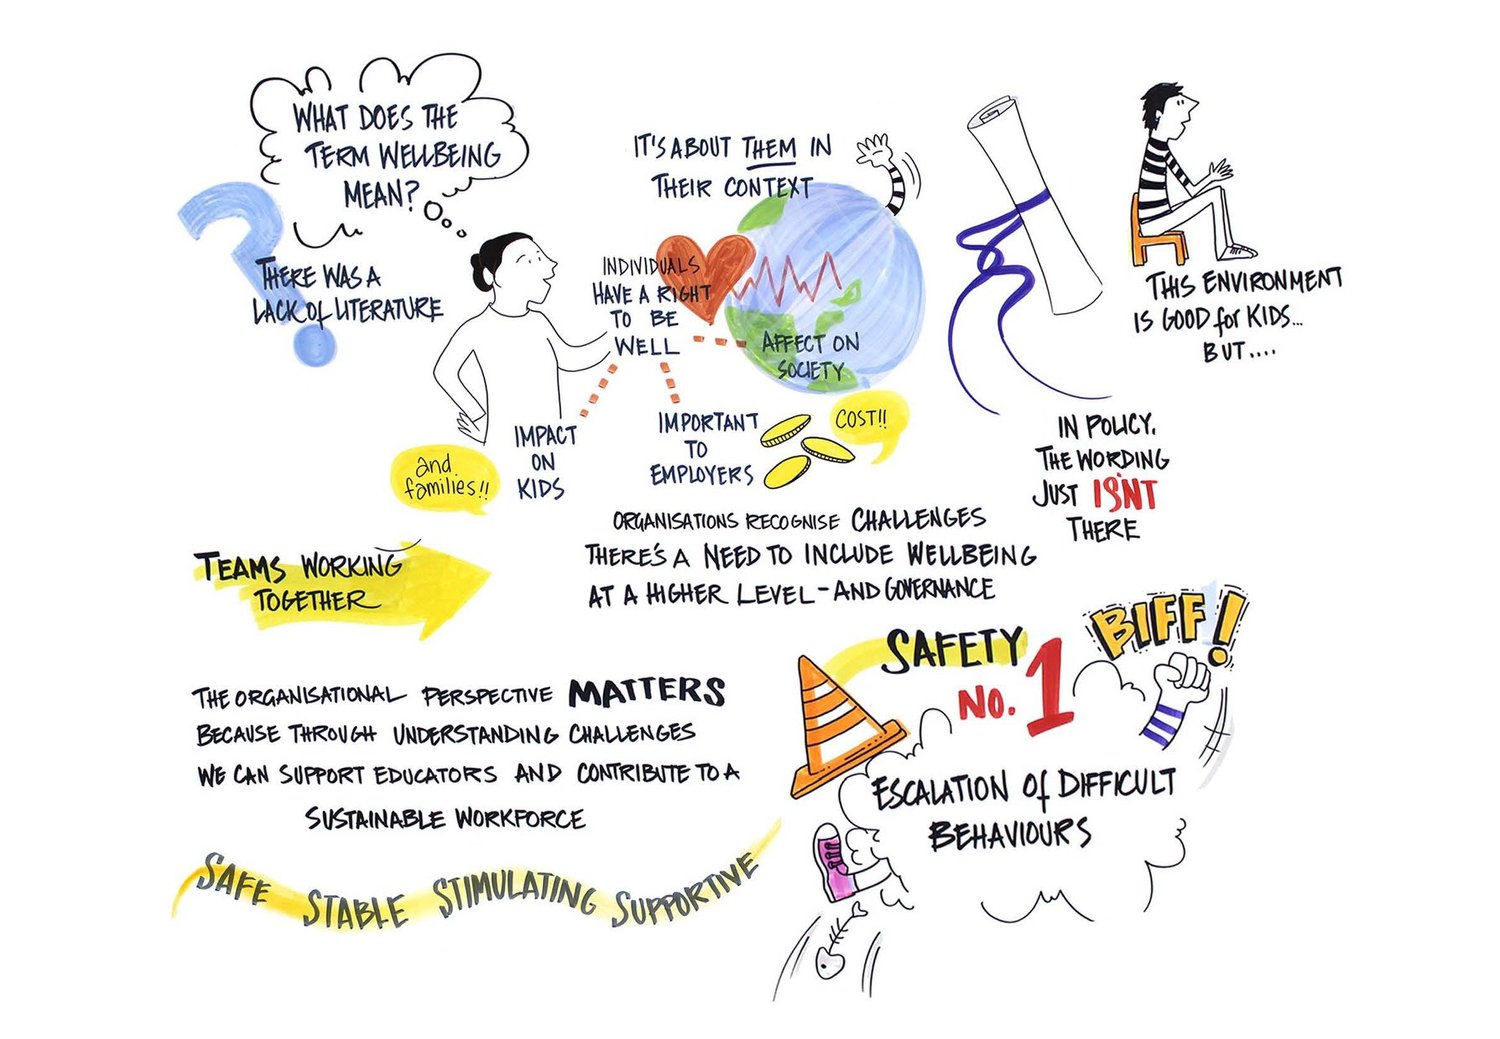 WHAT DOES THE
TERM WELLBEING
MEAN?
THERE WAS A
LACK of LITERATURE
IT'S ABOUT THEM IN
THEIR CONTEXT
INDIVIDUALS
HAVE A RIGHT
TO BE
WELL
AFFECT ON
SOCIETY
IMPACT
ON
KIDS
and
families!!
IMPORTANT
TO
EMPLOYERS
COST!!
THIS ENVIRONMENT
IS GOOD for KIDS...
BUT....
IN POLICY,
THE WORDING
JUST ISN'T
THERE
ORGANISATIONS RECOGNISE CHALLENGES
THERE'S A NEED TO INCLUDE WELLBEING
AT A HIGHER LEVEL - AND GOVERNANCE
TEAMS WORKING
TOGETHER
THE ORGANISATIONAL PERSPECTIVE MATTERS
BECAUSE THROUGH UNDERSTANDING CHALLENGES
WE CAN SUPPORT EDUCATORS AND CONTRIBUTE TO A
SUSTAINABLE WORKFORCE
SAFE STABLE STIMULATING SUPPORTIVE
SAFETY
NO. 1
BIFF!
ESCALATION of DIFFICULT
BEHAVIOURS